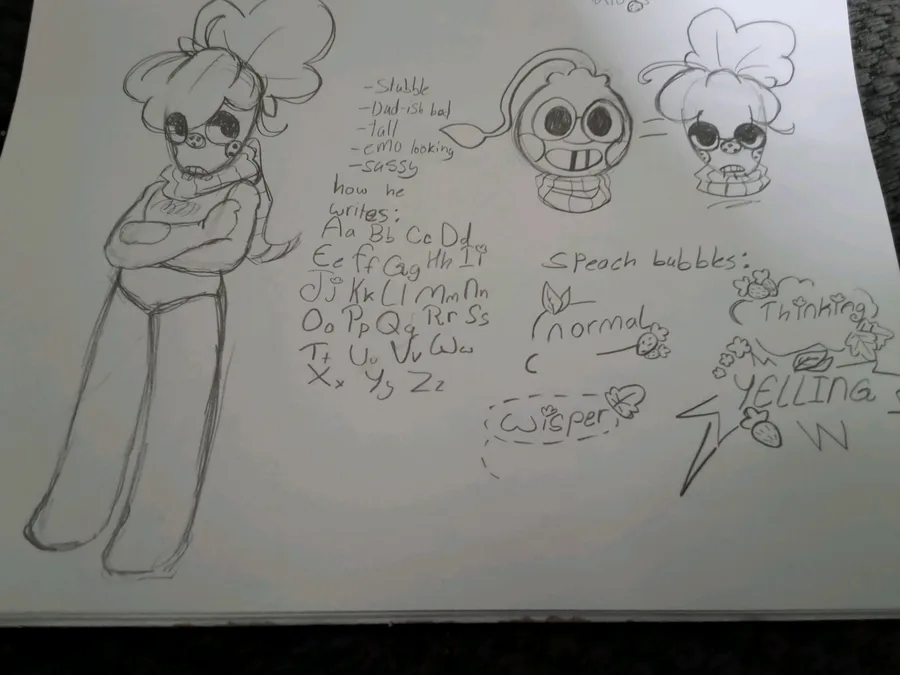 -Stubble
-Dad-ish bod
-tall
-emo looking
-sassy
how he
writes:
Aa Bb Cc Dd
Ee Ff Gg Hh Ii
Jj Kk Ll Mm Nn
Oo Pp Qq Rr Ss
Tt Uu Vv Ww
Xx Yy Zz
Speach bubbles:
normal
Thinking
Wisper
YELLING